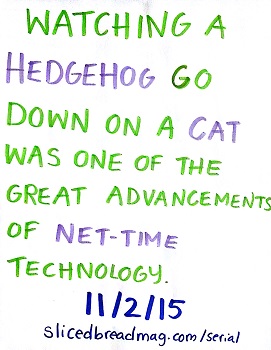 WATCHING A
HEDGEHOG GO
DOWN ON A CAT
WAS ONE OF THE
GREAT ADVANCEMENTS
OF NET-TIME
TECHNOLOGY.
11/2/15
slicedbreadmag.com/serial